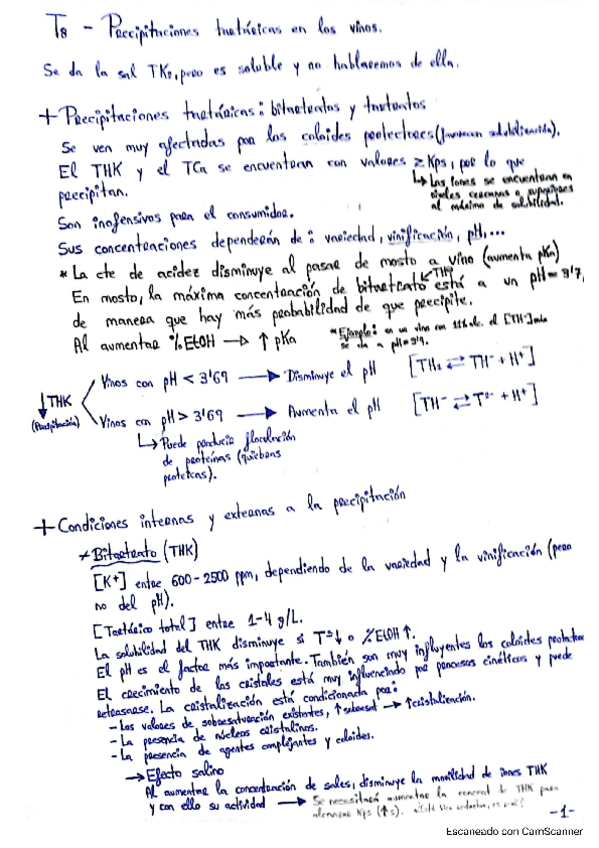 T8 - Precipitaciones tartáricas en los vinos.
Se da la sal TK2, pero es soluble y no hablaremos de ella.
+ Precipitaciones tartáricas: bitartratos y tartratos
Se ven muy afectadas por los coloides protectores (favorecen solubilización).
El THK y el TCa se encuentran con valores ≥ Kps, por lo que
↳ Los iones se encuentran en
precipitan.
niveles cercanos o superiores
al máximo de solubilidad.
Son inofensivos para el consumidor.
Sus concentraciones dependerán de: variedad, vinificación, pH,...
* La cte de acidez disminuye al pasar de mosto a vino (aumenta pKa)
↙ TH⁻
En mosto, la máxima concentración de bitartrato está a un pH = 3'7,
de manera que hay más probabilidad de que precipite.
Al aumentar % EtOH → ↑ pKa
* Ejemplo: en un vino con 11% alc. el [TH⁻] máx
se da a pH =
↓ THK
(Precipitación)
Vinos con pH < 3'69 → Disminuye el pH [TH2 ⇄ TH⁻ + H⁺]
Vinos con pH > 3'69 → Aumenta el pH [TH⁻ ⇄ T²⁻ + H⁺]
↳ Puede producir floculación
de proteínas (quiebras
proteicas).
+ Condiciones internas y externas a la precipitación
* Bitartrato (THK)
[K⁺] entre 600-2500 ppm, dependiendo de la variedad y la vinificación (pero
no del pH).
[Tartárico total] entre 1-4 g/L.
La solubilidad del THK disminuye si Tª ↓ o % EtOH ↑.
El pH es el factor más importante. También son muy influyentes los coloides protectores
El crecimiento de los cristales está muy influenciado por procesos cinéticos y puede
retrasarse. La cristalización está condicionada por:
- Los valores de sobresaturación existentes, ↑ sobresat → ↑ cristalización.
- La presencia de núcleos cristalinos.
- La presencia de agentes complejantes y coloides.
→ Efecto salino
Al aumentar la concentración de sales, disminuye la movilidad de iones THK
y con ello su actividad → Se necesitará aumentar la concent de THK para
alcanzar Kps (↑s).
-1-
Escaneado con CamScanner